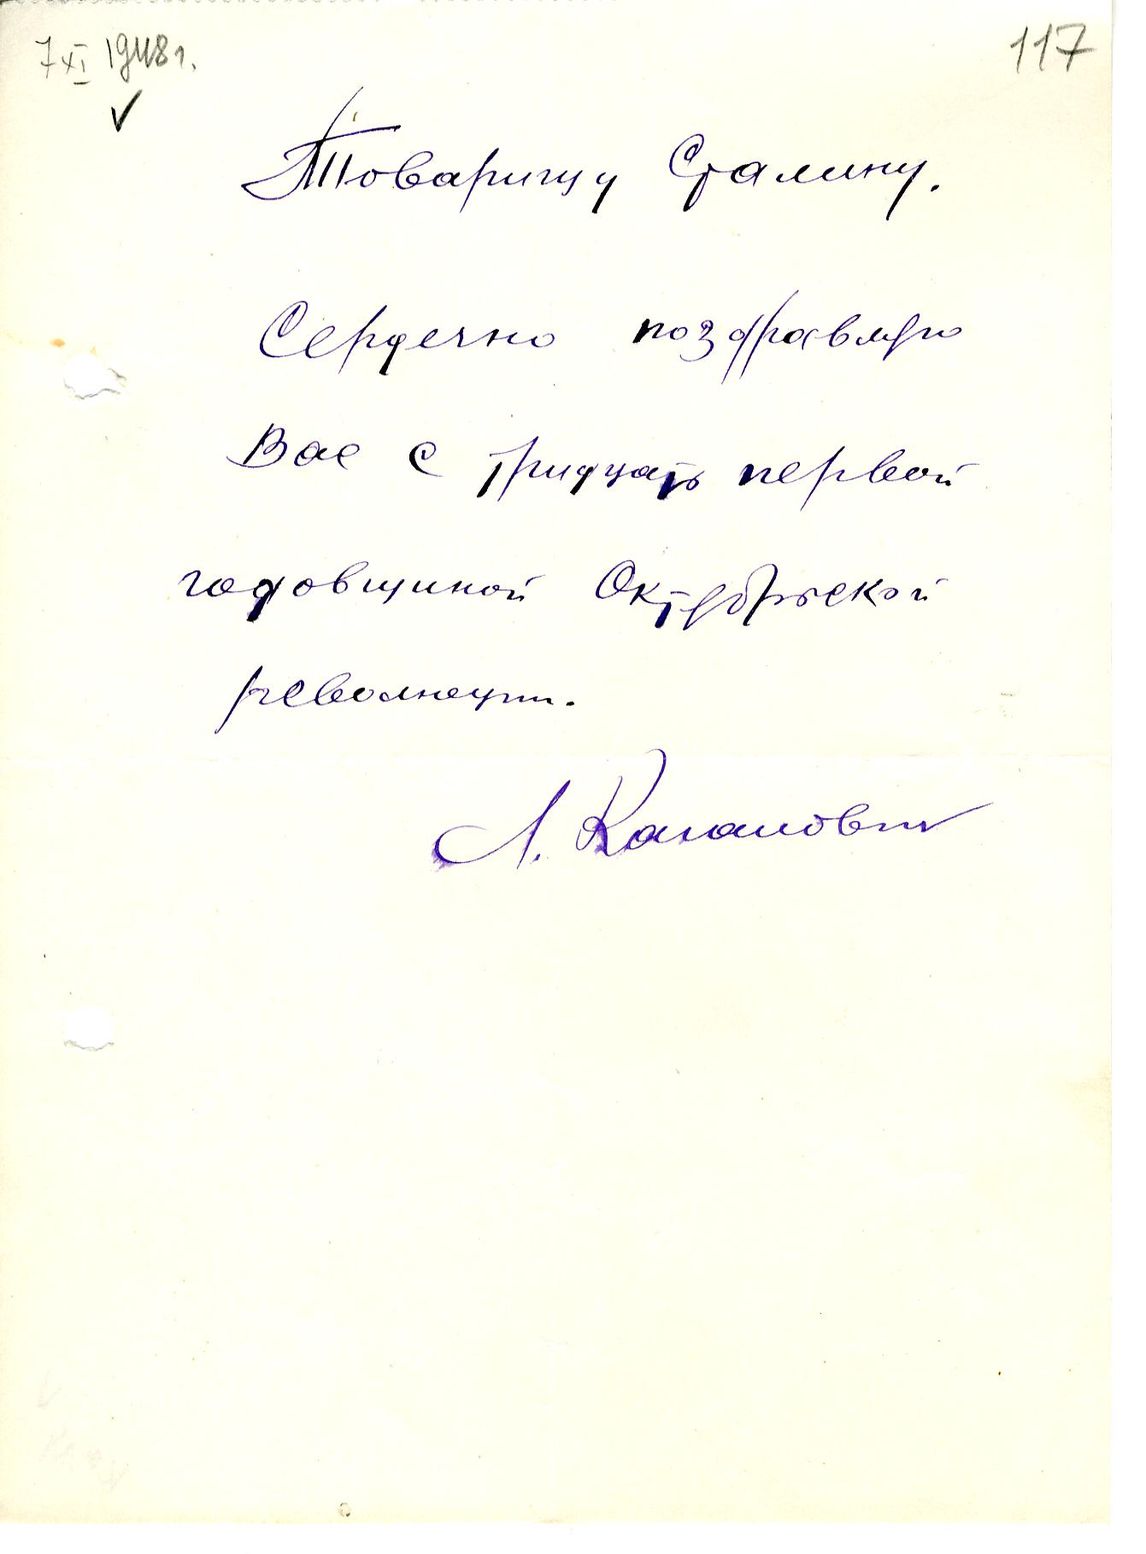 7 XI 1948 г.
117
Товарищу Сталину.
Сердечно поздравляю
Вас с тридцать первой
годовщиной Октябрьской
революции.
Л. Каганович